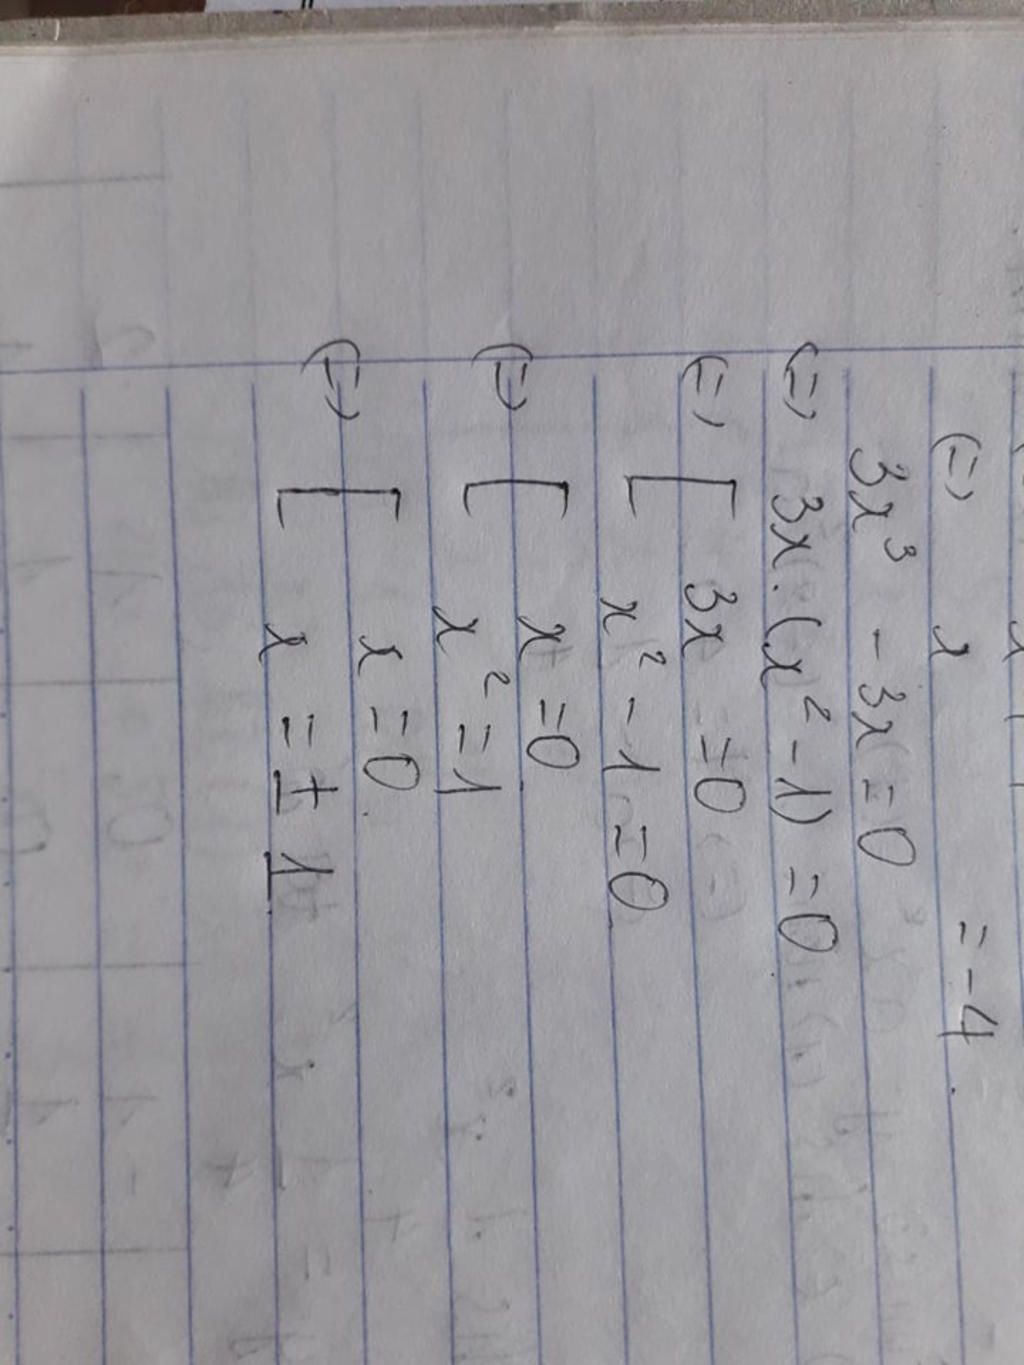 (=) x = -4
3x³ - 3x = 0
(=) 3x.(x² - 1) = 0
(=) [ 3x = 0
x² - 1 = 0
(=) [ x = 0
x² = 1
(=) [ x = 0
x = ± 1